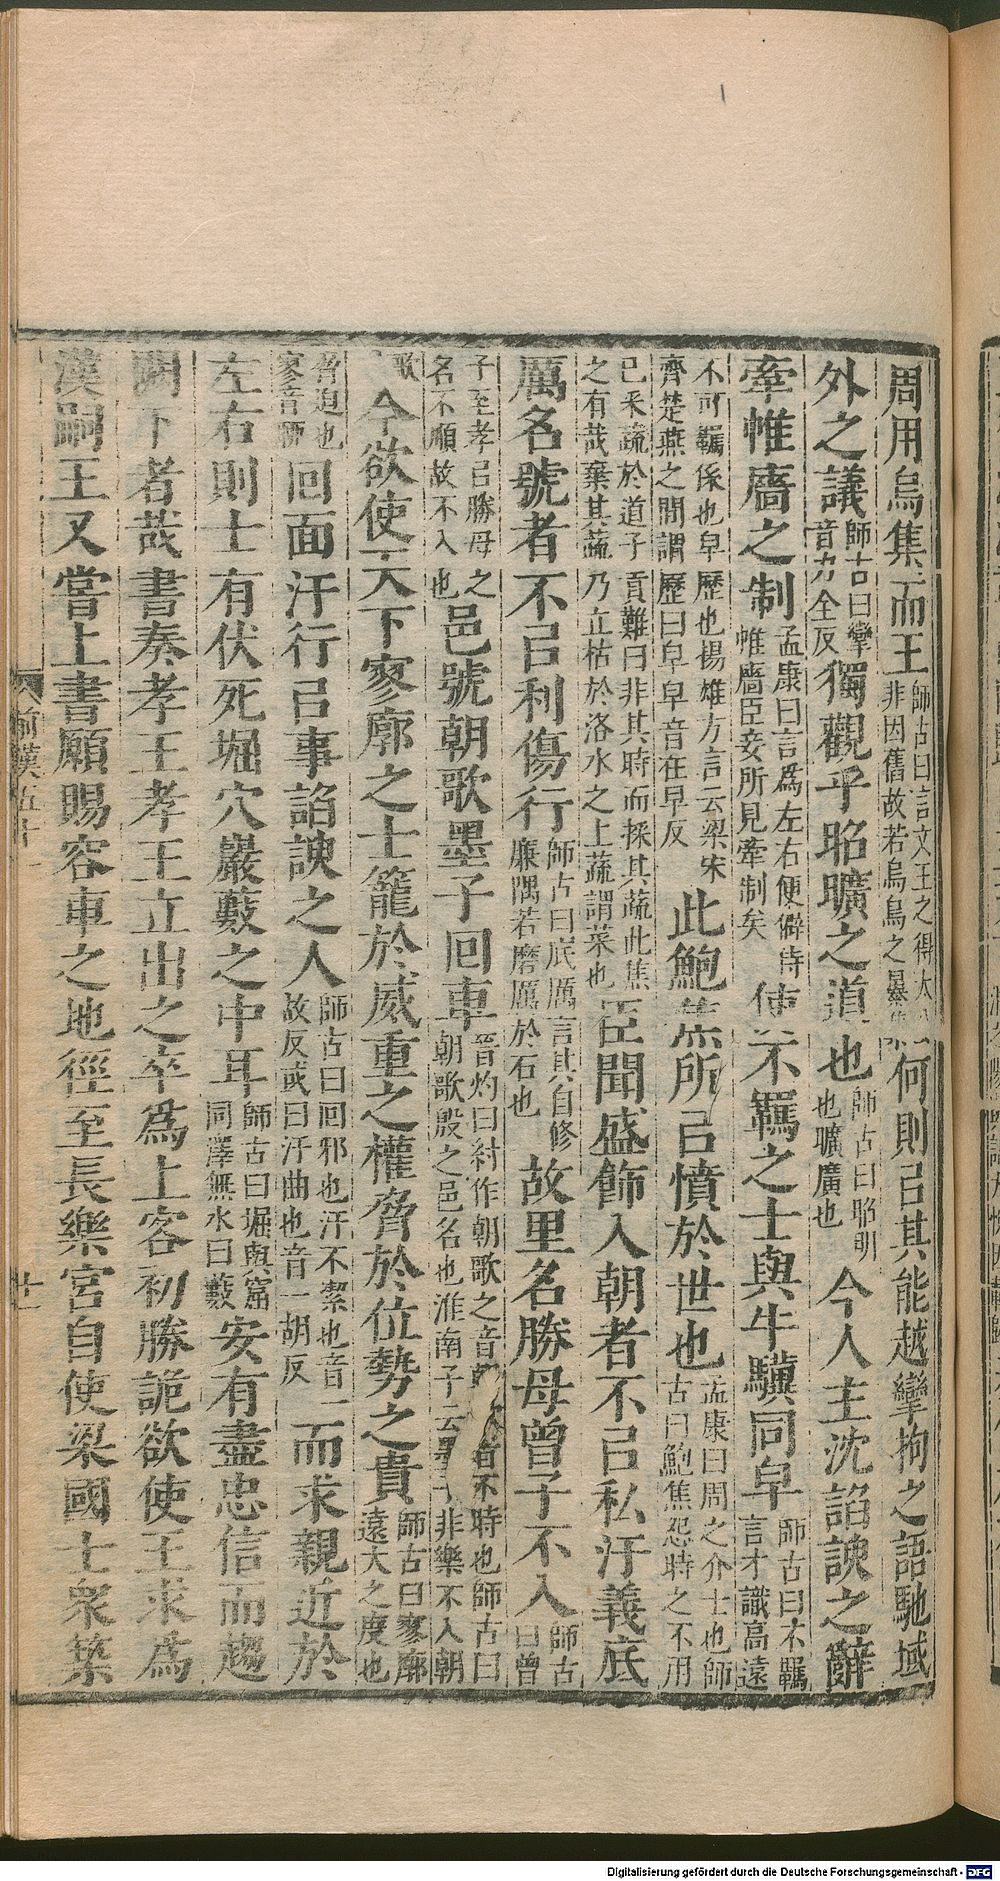 周用烏集而王師古曰言文王之得太公非因舊故若烏鳥之暴集何則㠯其能越攣拘之語馳域
外之議師古曰攣音力全反獨觀乎昭曠之道也師古曰昭明也曠廣也今人主沈諂諛之辭
牽帷廧之制孟康曰言爲左右便僻侍帷廧臣妾所見牽制矣使不羈之士與牛驥同皁師古曰不羈言才識高遠
不可羈係也皁歷也揚雄方言云梁宋齊楚燕之間謂歷曰皁皁音在早反此鮑焦所㠯憤於世也孟康曰周之介士也師古曰鮑焦怨時之不用
己采蔬於道子貢難曰非其時而採其蔬此焦之有哉棄其蔬乃立枯於洛水之上蔬謂菜也臣聞盛飾入朝者不㠯私汙義底
厲名號者不㠯利傷行師古曰底厲言其自修廉隅若磨厲於石也故里名勝母曾子不入師古曰曾
子至孝㠯勝母之名不順故不入也邑號朝歌墨子回車晉灼曰紂作朝歌之音者不時也師古曰朝歌殷之邑名也淮南子云墨子非樂不入朝
歌今欲使天下寥廓之士籠於威重之權脅於位勢之貴師古曰寥廓遠大之度也
脅迫也寥音聊回面汙行㠯事諂諛之人師古曰回邪也汙不絜也音一故反或曰汙曲也音一胡反而求親近於
左右則士有伏死堀穴巖藪之中耳師古曰堀與窟同澤無水曰藪安有盡忠信而趨
闕下者哉書奏孝王孝王立出之卒爲上客初勝詭欲使王求爲
漢嗣王又嘗上書願賜容車之地徑至長樂宮自使梁國士衆築
前漢五十一
廿一
Digitalisierung gefördert durch die Deutsche Forschungsgemeinschaft - DFG